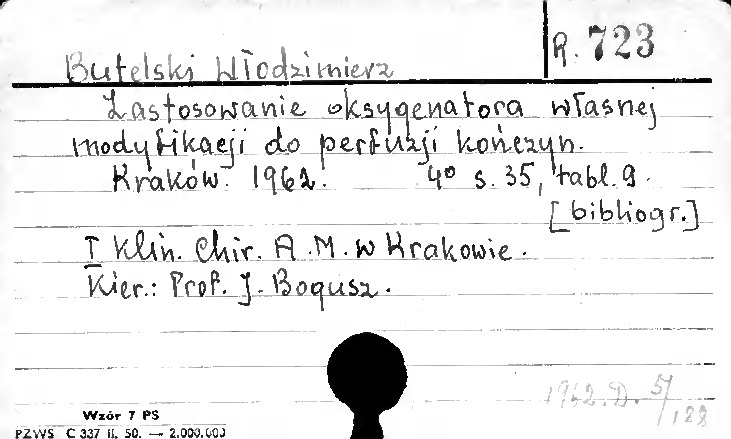 R. 723
Butelski Włodzimierz
Zastosowanie oksygenatora własnej
modyfikacji do perfuzji kończyn.
Kraków. 1962. 4° s. 35, tabl. 9.
[bibliogr.]
I Klin. Chir. A.M. w Krakowie.
Kier.: Prof. J. Bogusz.
1962. D. 5/122
Wzór 7 PS
PZWS C 337 II. 50. — 2.000.000